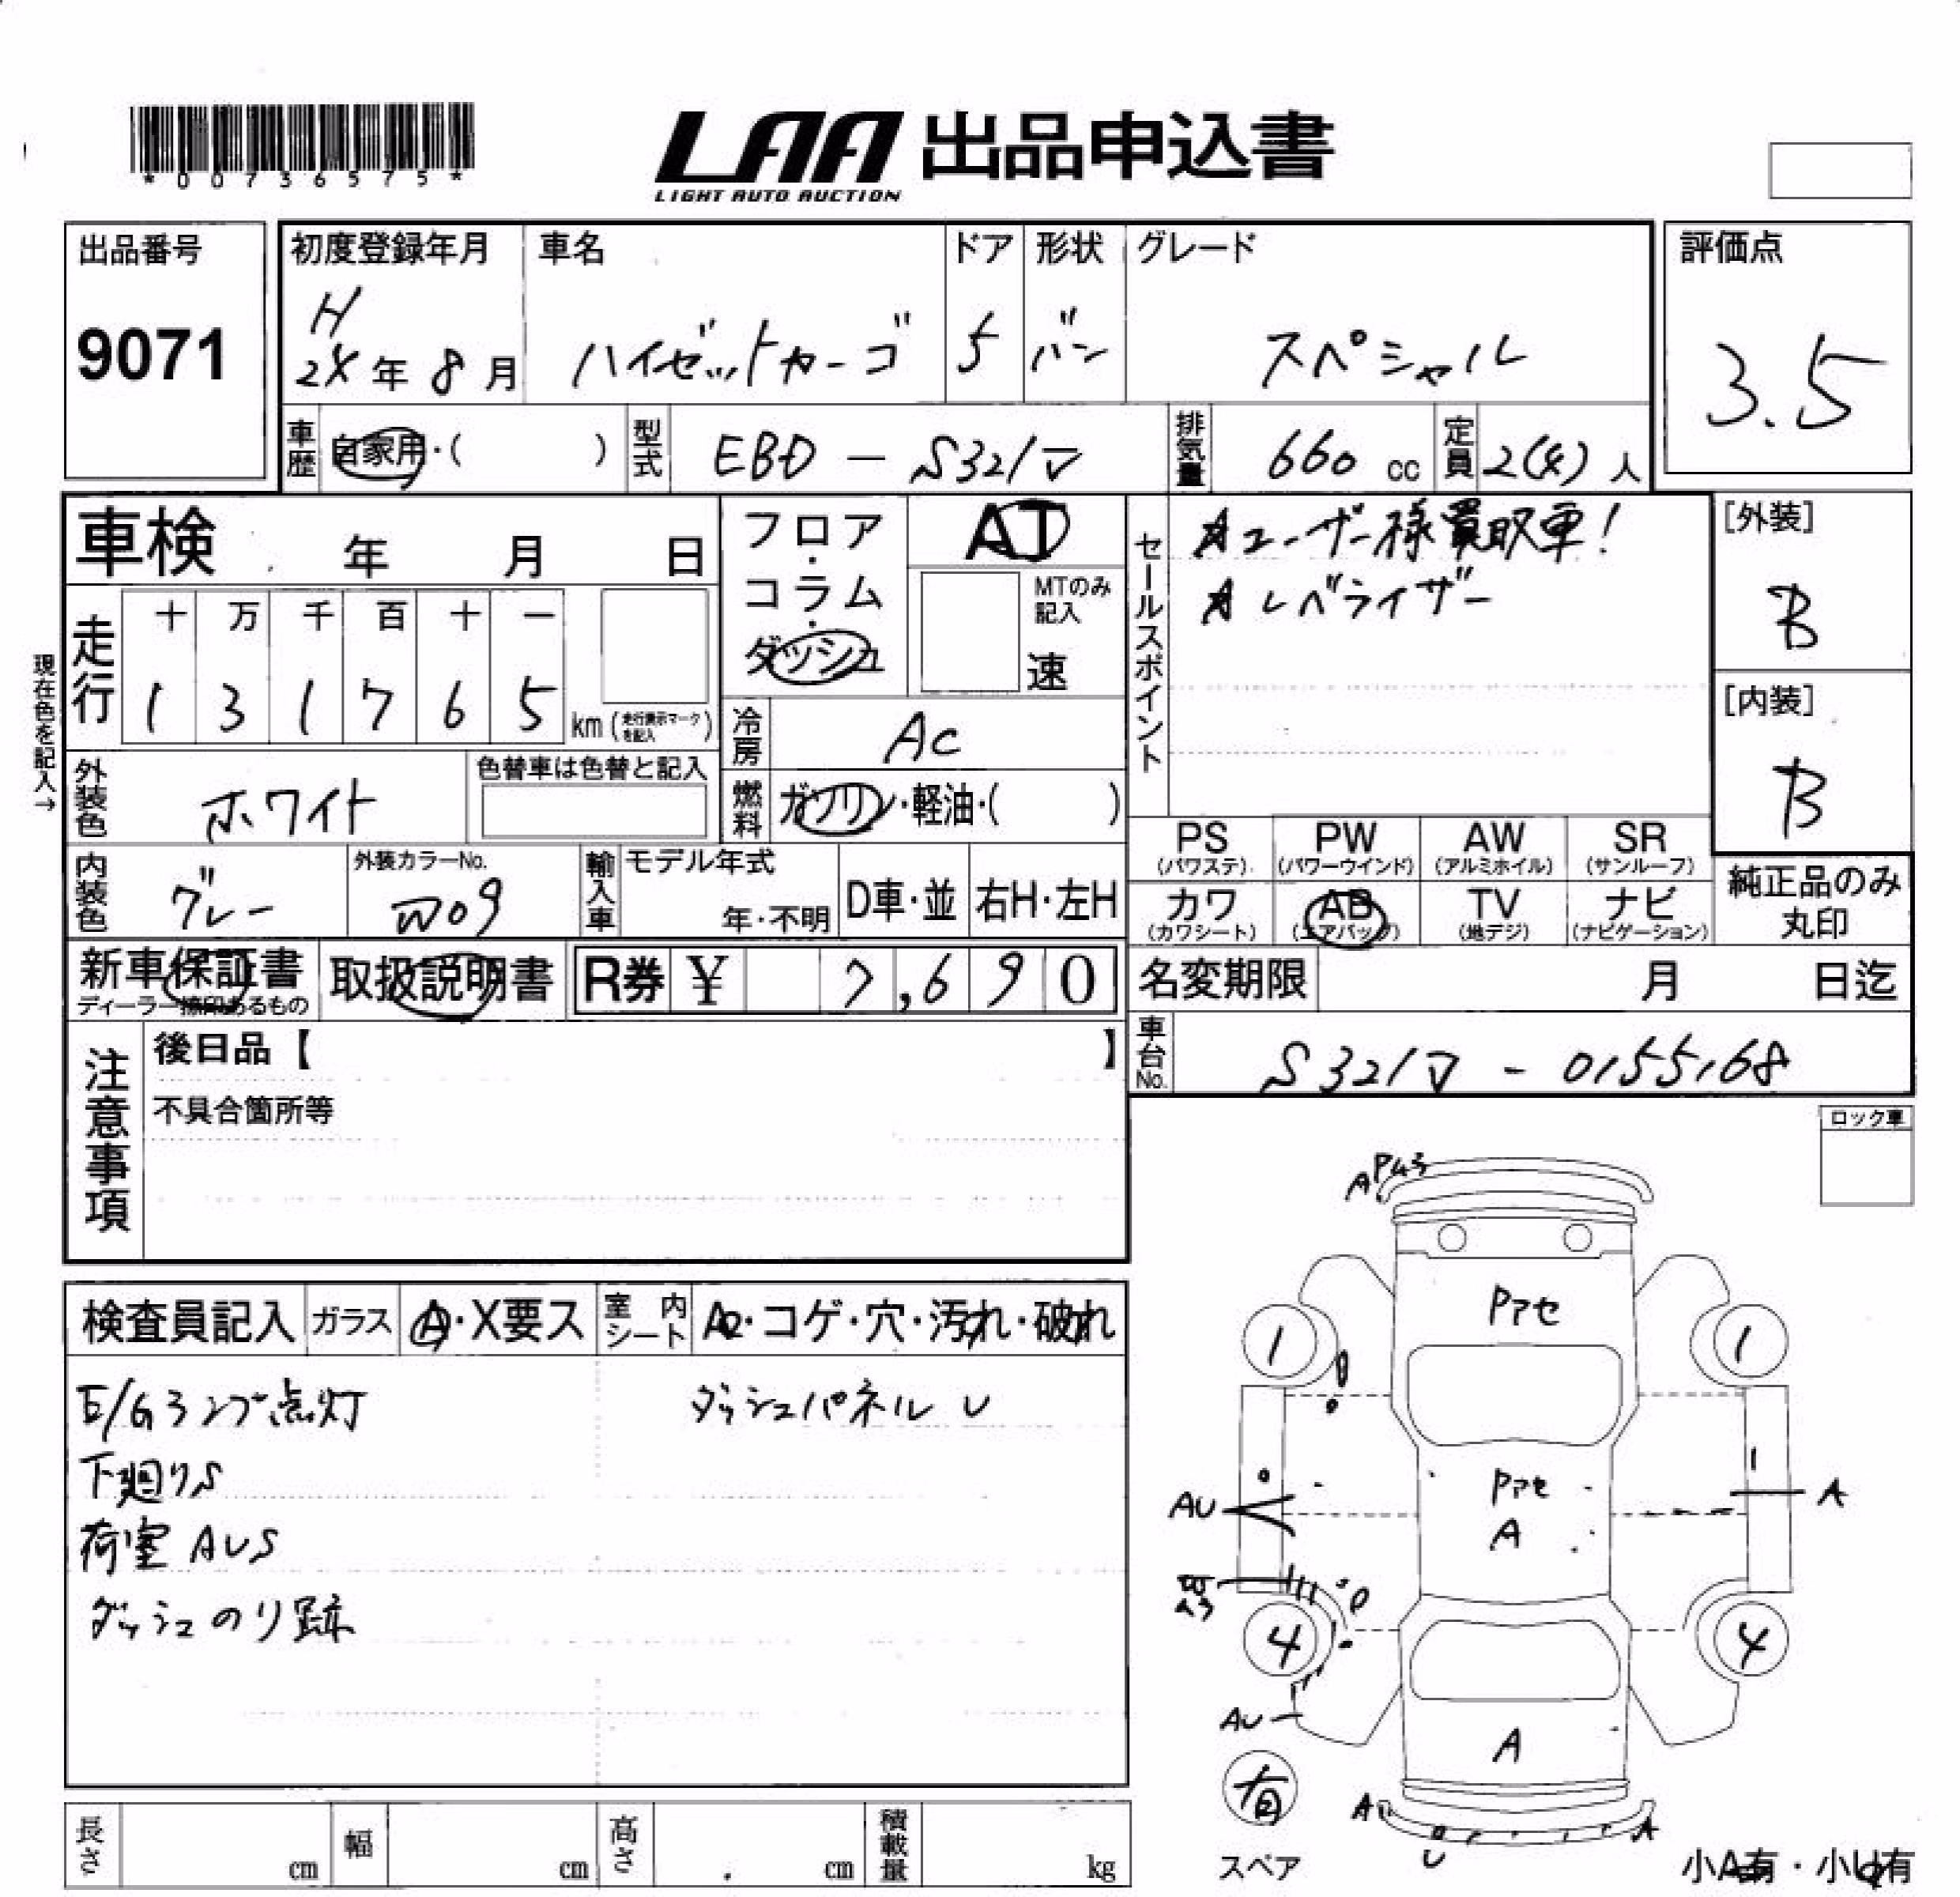 *00736575*
LAA 出品申込書
LIGHT AUTO AUCTION
出品番号
9071
初度登録年月
H
2X年 8月
車名
ハイゼットカーゴ
ドア
5
形状
バン
グレード
スペシャル
評価点
3.5
車歴
自家用・( )
型式
EBD - S321V
排気量
660 cc
定員
2(4) 人
車検
年 月 日
フロア・コラム・ダッシュ
AT
MTのみ記入
速
セールスポイント
ユーザー様買取車!
レベライザー
[外装]
B
[内装]
B
現在色を記入→
走行
十 万 千 百 十 一
1 3 1 7 6 5
km (走行表示マークを記入)
冷房
AC
外装色
ホワイト
色替車は色替と記入
燃料
ガソリン・軽油・( )
PS
(パワステ)
PW
(パワーウインド)
AW
(アルミホイル)
SR
(サンルーフ)
内装色
グレー
外装カラーNo.
W09
輸入車
モデル年式
年・不明
D車・並
右H・左H
カワ
(カワシート)
AB
(エアバッグ)
TV
(地デジ)
ナビ
(ナビゲーション)
純正品のみ
丸印
新車保証書
ディーラー捺印あるもの
取扱説明書
R券 ¥ 7,690
名変期限
月 日迄
車台No.
S321V - 0155168
注意事項
後日品【 】
不具合箇所等
ロック車
検査員記入
ガラス
A・X要ス
室内シート
・コゲ・穴・汚れ・破れ
E/Gランプ点灯
ダッシュパネル U
下廻りS
荷室 AUS
ダッシュのり跡
A
1
1
AU
A
A
4
4
AU
A
有
スペア
A
A
U
小A有・小U有
長さ
cm
幅
cm
高さ
cm
積載量
kg